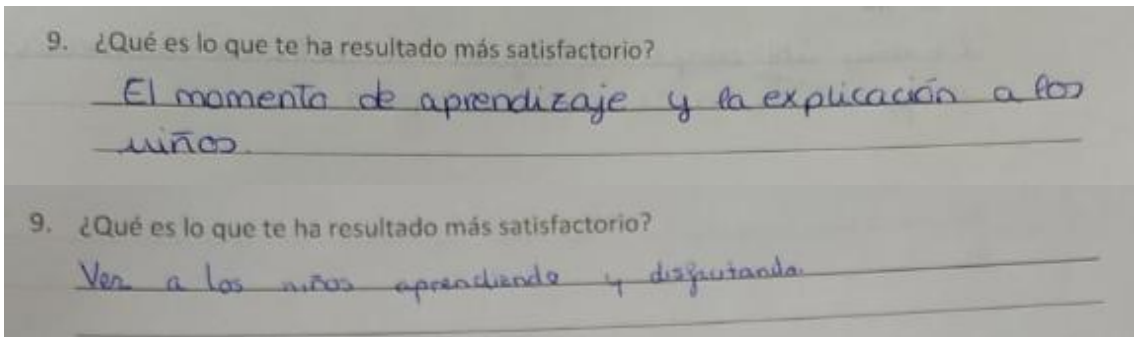 9. ¿Qué es lo que te ha resultado más satisfactorio?
El momento de aprendizaje y la explicación a los
niños.
9. ¿Qué es lo que te ha resultado más satisfactorio?
Ver a los niños aprendiendo y disfrutando.